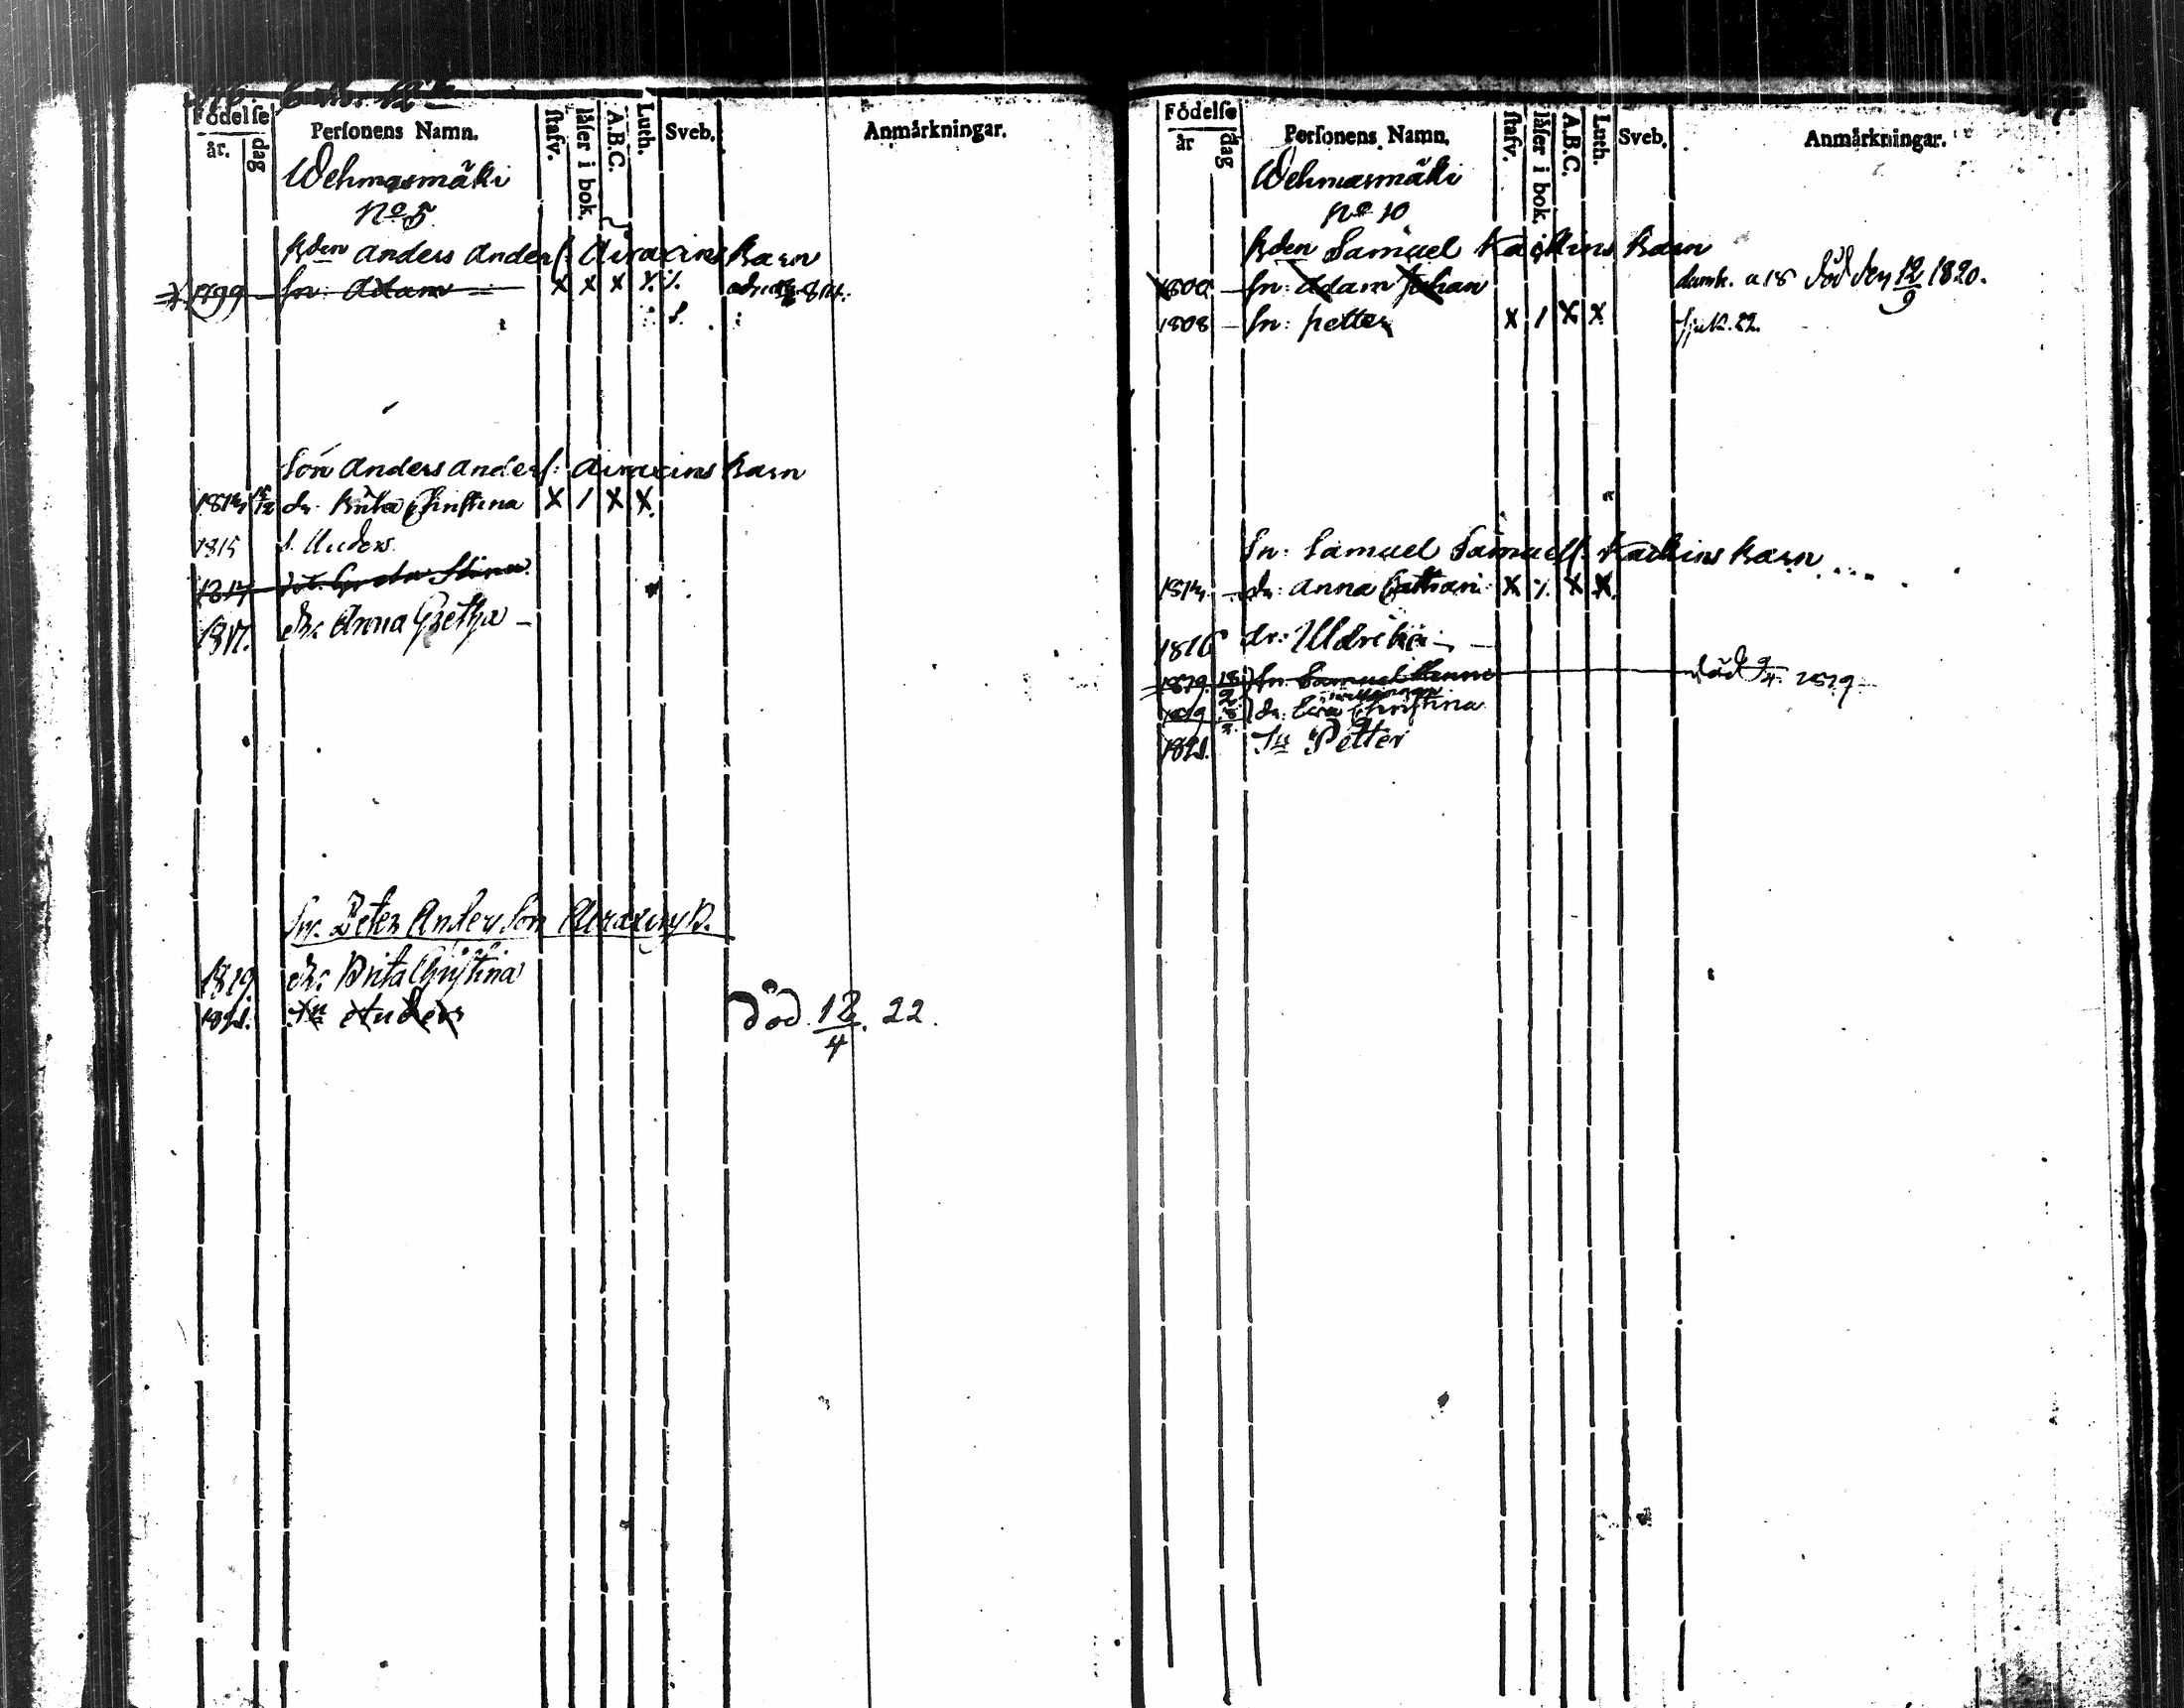 Födelse
år. dag Personens Namn. stafv. läser i bok. A.B.C. Luth. Sveb. Anmärkningar.
Wehmasmäki
No 5
Bden Anders Anders: Airaxins Barn
1799 Sn: Adam x x x
Son Anders Anders: Airaxins Barn
1814 dr. Brita Christina x / x x
1815 S. Anders
1817 Greta Stina
1817. dr. Anna Gretha
Sn. Peter Anderson Airaxins B.
1819 dr. Brita Christina
1821. Sn Anders död 12/4. 22.
Födelse
år dag Personens Namn. stafv. läser i bok. A.B.C. Luth. Sveb. Anmärkningar.
Wehmasmäki
No 10
Bden Samuel Barn
1800 Sn: Adam Johan död den 12/9 1820.
1808 Sn: Petter x / x x
Sn: Samuel Samuels: Barn
1814 dr: Anna Cathari: x x x
1816 dr: Uldrika
1819 18/2 Sn: Samuel död 9/4 1819
1819 dr: Eva Christina
1821. Sn Petter